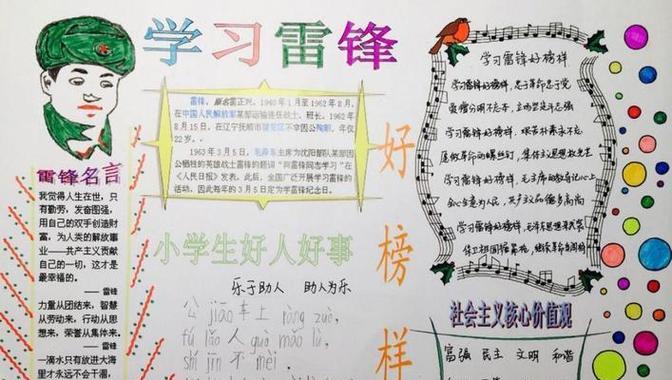 学习雷锋
好榜样
雷锋名言
我觉得人生在世，只
有勤劳，发奋图强，
用自己的双手创造财
富，为人类的解放事
业——共产主义贡献
自己的一切，这才是
最幸福的。
—— 雷锋
力量从团结来，智慧
从劳动来，行动从思
想来，荣誉从集体来。
—— 雷锋
一滴水只有放进大海
里才永远不会干涸，
雷锋，原名雷正兴，1940年1月至1962年8月，
在中国人民解放军某部运输连任战士、班长。1962年
8月15日，在辽宁抚顺市望花区不幸因公殉职，年仅
22岁。
1963年3月5日，毛泽东主席为沈阳部队某部因
公牺牲的英雄战士雷锋的题词“向雷锋同志学习”在
《人民日报》发表。此后，全国广泛开展学习雷锋的
活动，因此每年的3月5日定为学雷锋纪念日。
小学生好人好事
乐于助人 助人为乐
公jiāo车上ràng zuò，
fú lǎo人guò mǎ lù，
shí jīn不mèi
学习雷锋好榜样
学习雷锋好榜样，忠于革命忠于党
爱憎分明不忘本，立场坚定斗志强
学习雷锋好榜样，艰苦朴素永不忘
愿做革命的螺丝钉，集体主义思想放光芒
学习雷锋好榜样，毛主席的教导记心上
全心全意为人民，共产主义品德多高尚
学习雷锋好榜样，毛泽东思想来武装
保卫祖国握紧枪，继续革命当闯将
社会主义核心价值观
富强 民主 文明 和谐